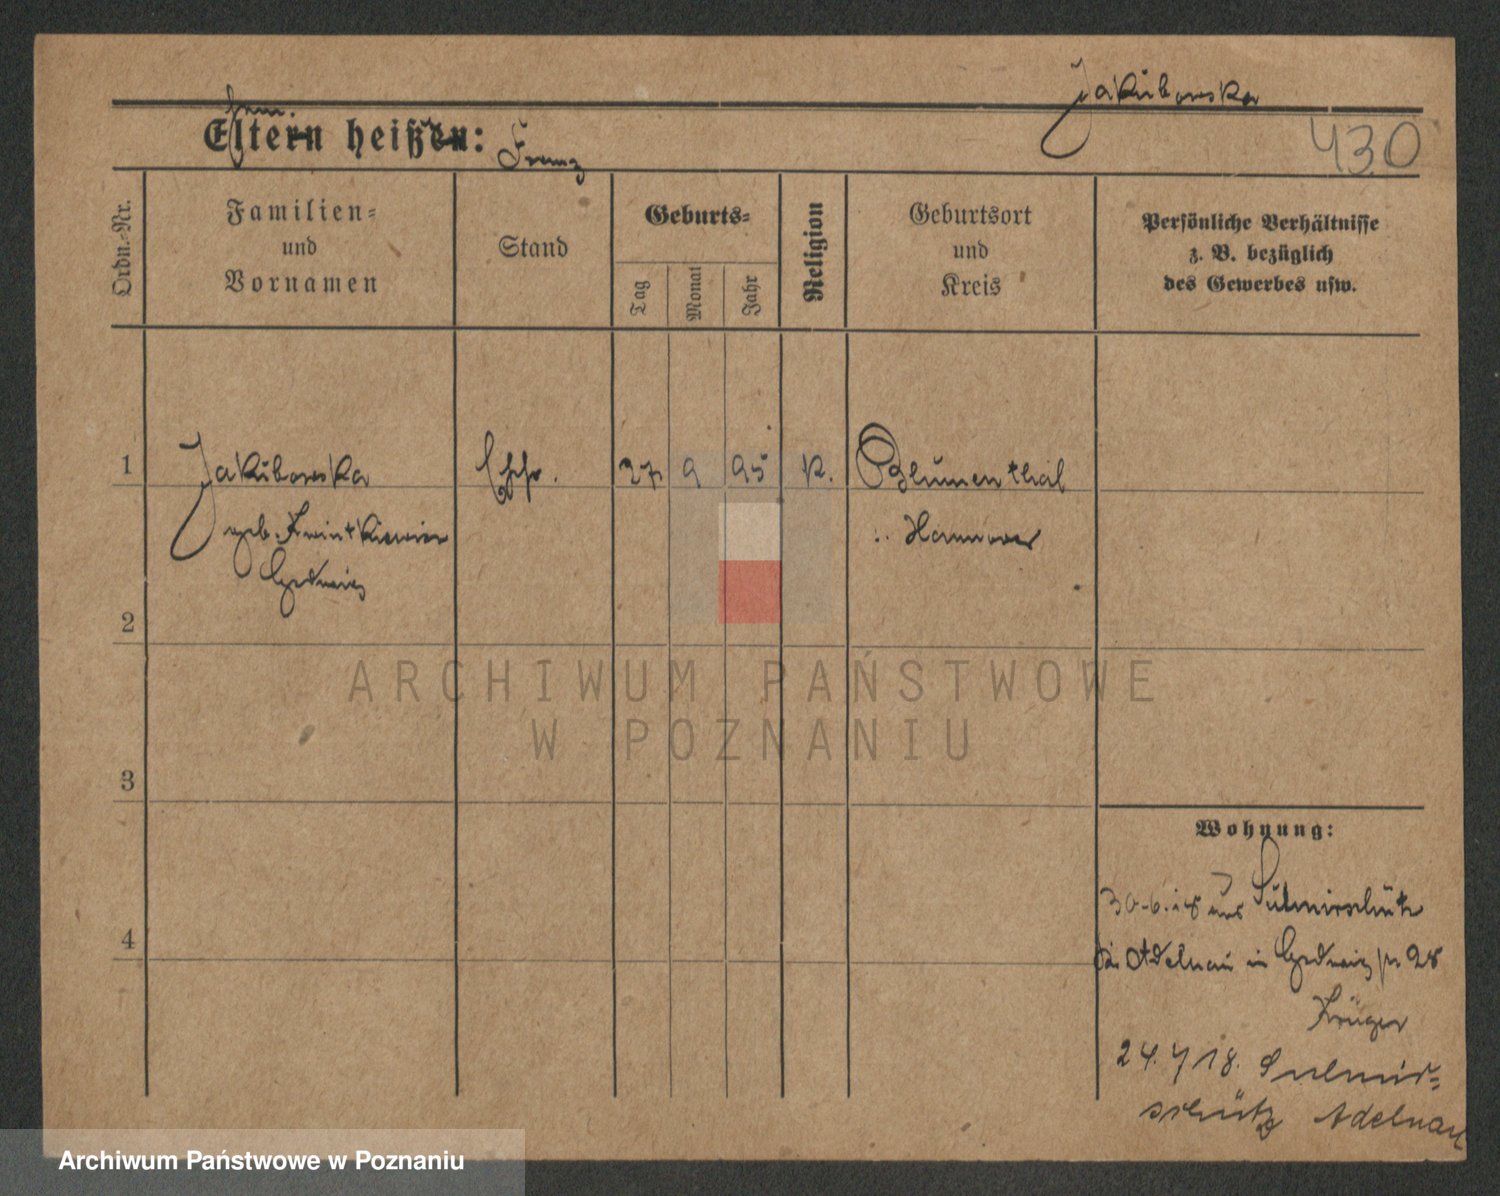 Jakubowska
430
Eltern heißen: Franz
Ordn.-Nr.
Familien-
und
Vornamen
Stand
Geburts-
Tag
Monat
Jahr
Religion
Geburtsort
und
Kreis
Persönliche Verhältnisse
z. B. bezüglich
des Gewerbes usw.
1 Jakubowska 27 9 95 K. Blumenthal
geb. Hannover
Hedwig
2
ARCHIWUM PAŃSTWOWE
W POZNANIU
3
Wohnung:
30.6.18 aus Sulmirschütz
4
Adelnau in Hedwig 28
Krüger
24.7 18. Sulmir-
schütz Adelnau
Archiwum Państwowe w Poznaniu